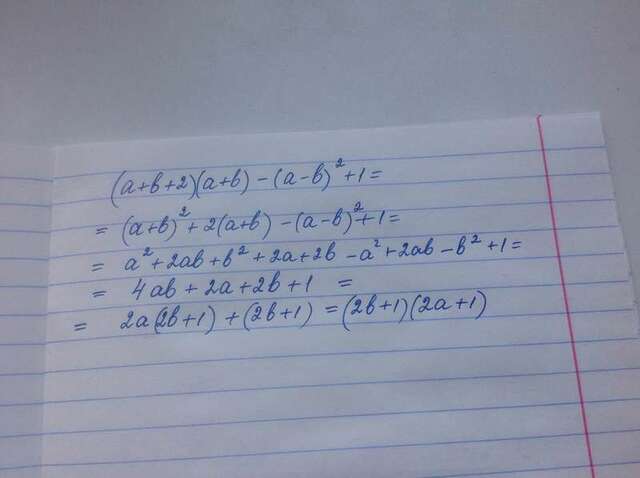 (a+b+2)(a+b)-(a-b)²+1=
= (a+b)²+2(a+b)-(a-b)²+1=
= a²+2ab+b²+2a+2b-a²+2ab-b²+1=
= 4ab+2a+2b+1 =
= 2a(2b+1)+(2b+1)=(2b+1)(2a+1)